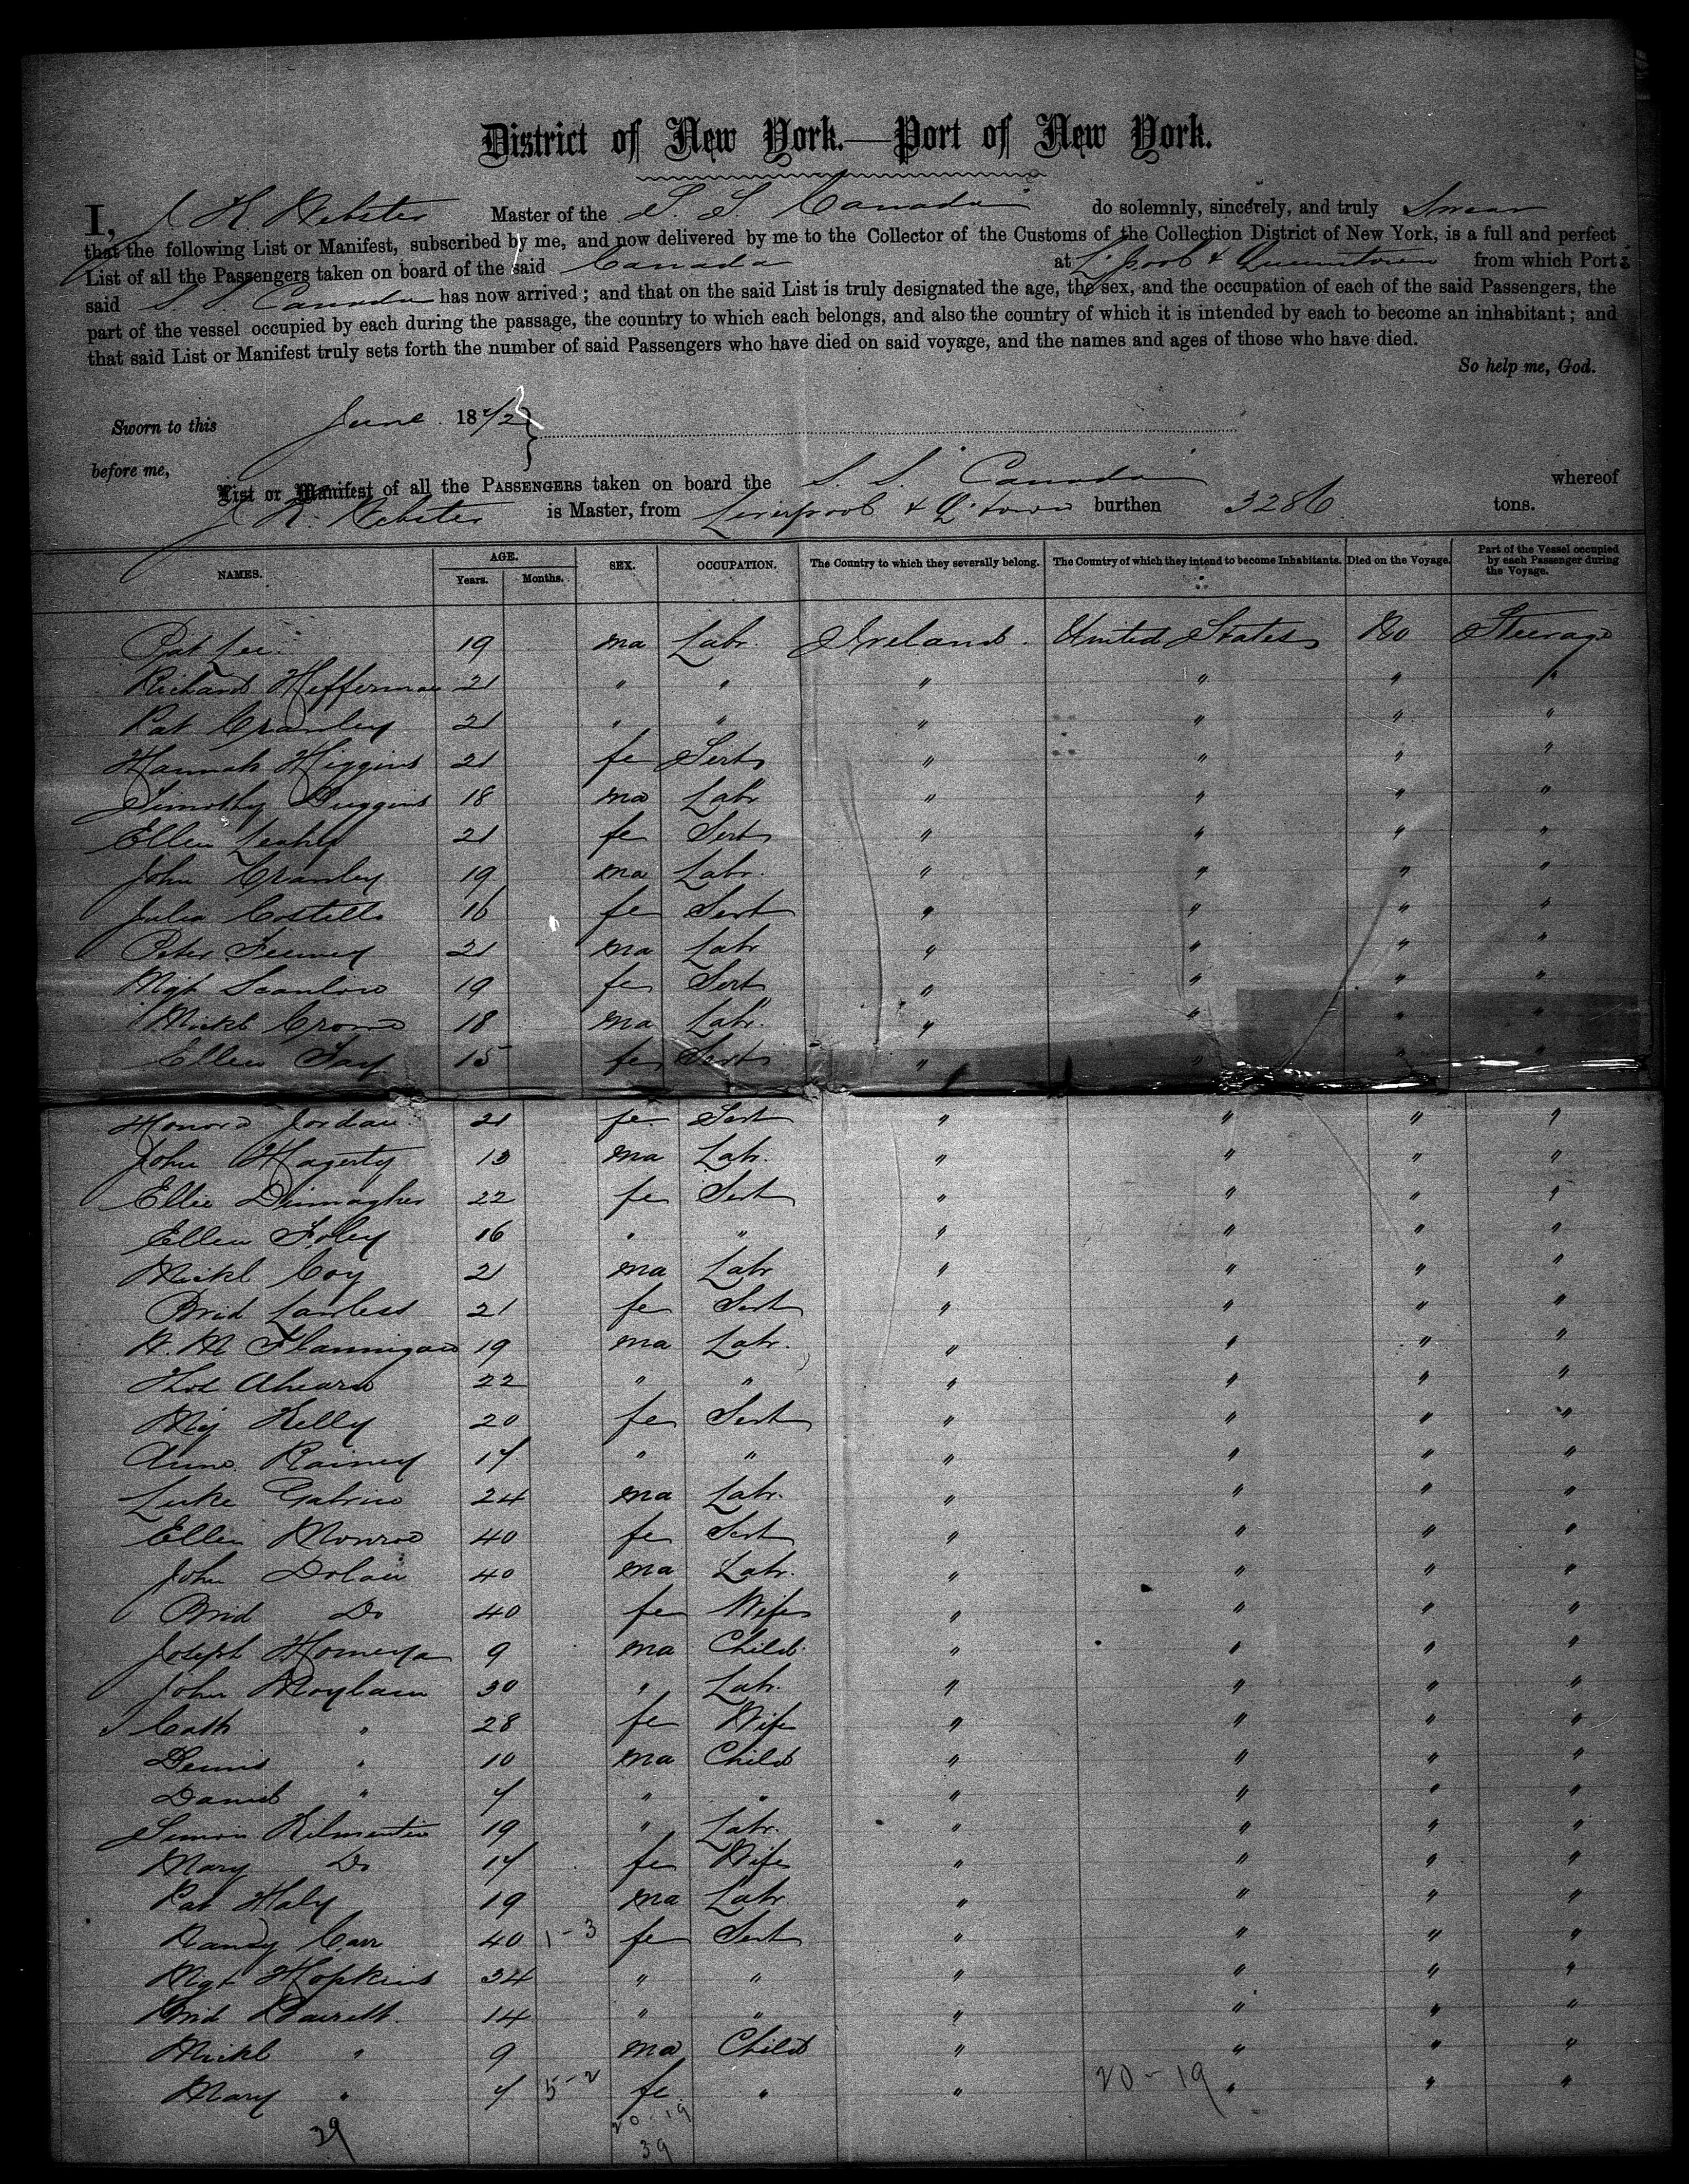 District of New York.—Port of New York.
I, J H. Webster Master of the S. S. Canada do solemnly, sincerely, and truly Swear
that the following List or Manifest, subscribed by me, and now delivered by me to the Collector of the Customs of the Collection District of New York, is a full and perfect
List of all the Passengers taken on board of the said Canada at L'pool & Queenstown from which Port
said S. S. Canada has now arrived; and that on the said List is truly designated the age, the sex, and the occupation of each of the said Passengers, the
part of the vessel occupied by each during the passage, the country to which each belongs, and also the country of which it is intended by each to become an inhabitant; and
that said List or Manifest truly sets forth the number of said Passengers who have died on said voyage, and the names and ages of those who have died.
So help me, God.
Sworn to this June 1872
before me,
List or Manifest of all the PASSENGERS taken on board the S. S. "Canada" whereof
J H. Webster is Master, from Liverpool & Q'town burthen 3286 tons.
NAMES. AGE. Years. Months. SEX. OCCUPATION. The Country to which they severally belong. The Country of which they intend to become Inhabitants. Died on the Voyage. Part of the Vessel occupied by each Passenger during the Voyage.
Pat Lee 19 ma Labr. Ireland. United States No Steerage
Richard Heffernan 21 " " " " " "
Pat Cranley 21 " " " " " "
Hannah Higgins 21 fe Sert " " " "
Timothy Duggins 18 ma Labr " " " "
Ellen Leahy 21 fe Sert " " " "
John Cranley 19 ma Labr. " " " "
Julia Costello 16 fe Sert " " " "
Peter Feeney 21 ma Labr " " " "
Mgt Scanlon 19 fe Sert " " " "
Mickl Crome 18 ma Labr. " " " "
Ellen Fay 15 fe Sert " " " "
Honora Jordan 21 fe Sert " " " "
John Hagerty 13 ma Labr. " " " "
Ellie 22 fe Sert " " " "
Ellen Foley 16 " " " " " "
Mickl Coy 21 ma Labr " " " "
Brid Lawless 21 fe Sert " " " "
Flannigan 19 ma Labr. " " " "
Thos Ahearn 22 " " " " " "
Mgt Kelly 20 fe Sert " " " "
Anne Rainey 17 " " " " " "
Luke 24 ma Labr. " " " "
Ellen Monroe 40 fe Sert " " " "
John Dolan 40 ma Labr. " " " "
Brid Do 40 fe Wife " " " "
Joseph 9 ma Child " " " "
John Moylan 30 " Labr. " " " "
Cath " 28 fe Wife " " " "
Dennis " 10 ma Child " " " "
Daniel " 7 " " " " " "
Simon 19 " Labr. " " " "
Mary Do 17 fe Wife " " " "
Pat Haly 19 ma Labr. " " " "
Nancy Carr 40 1-3 fe Sert " " " "
Mgt Hopkins 34 " " " " " "
Brid Barrett 14 " " " " " "
Mickl " 9 ma Child " " " "
Mary " 7 5-2 fe " " 20-19 " " "
20-19
39 39